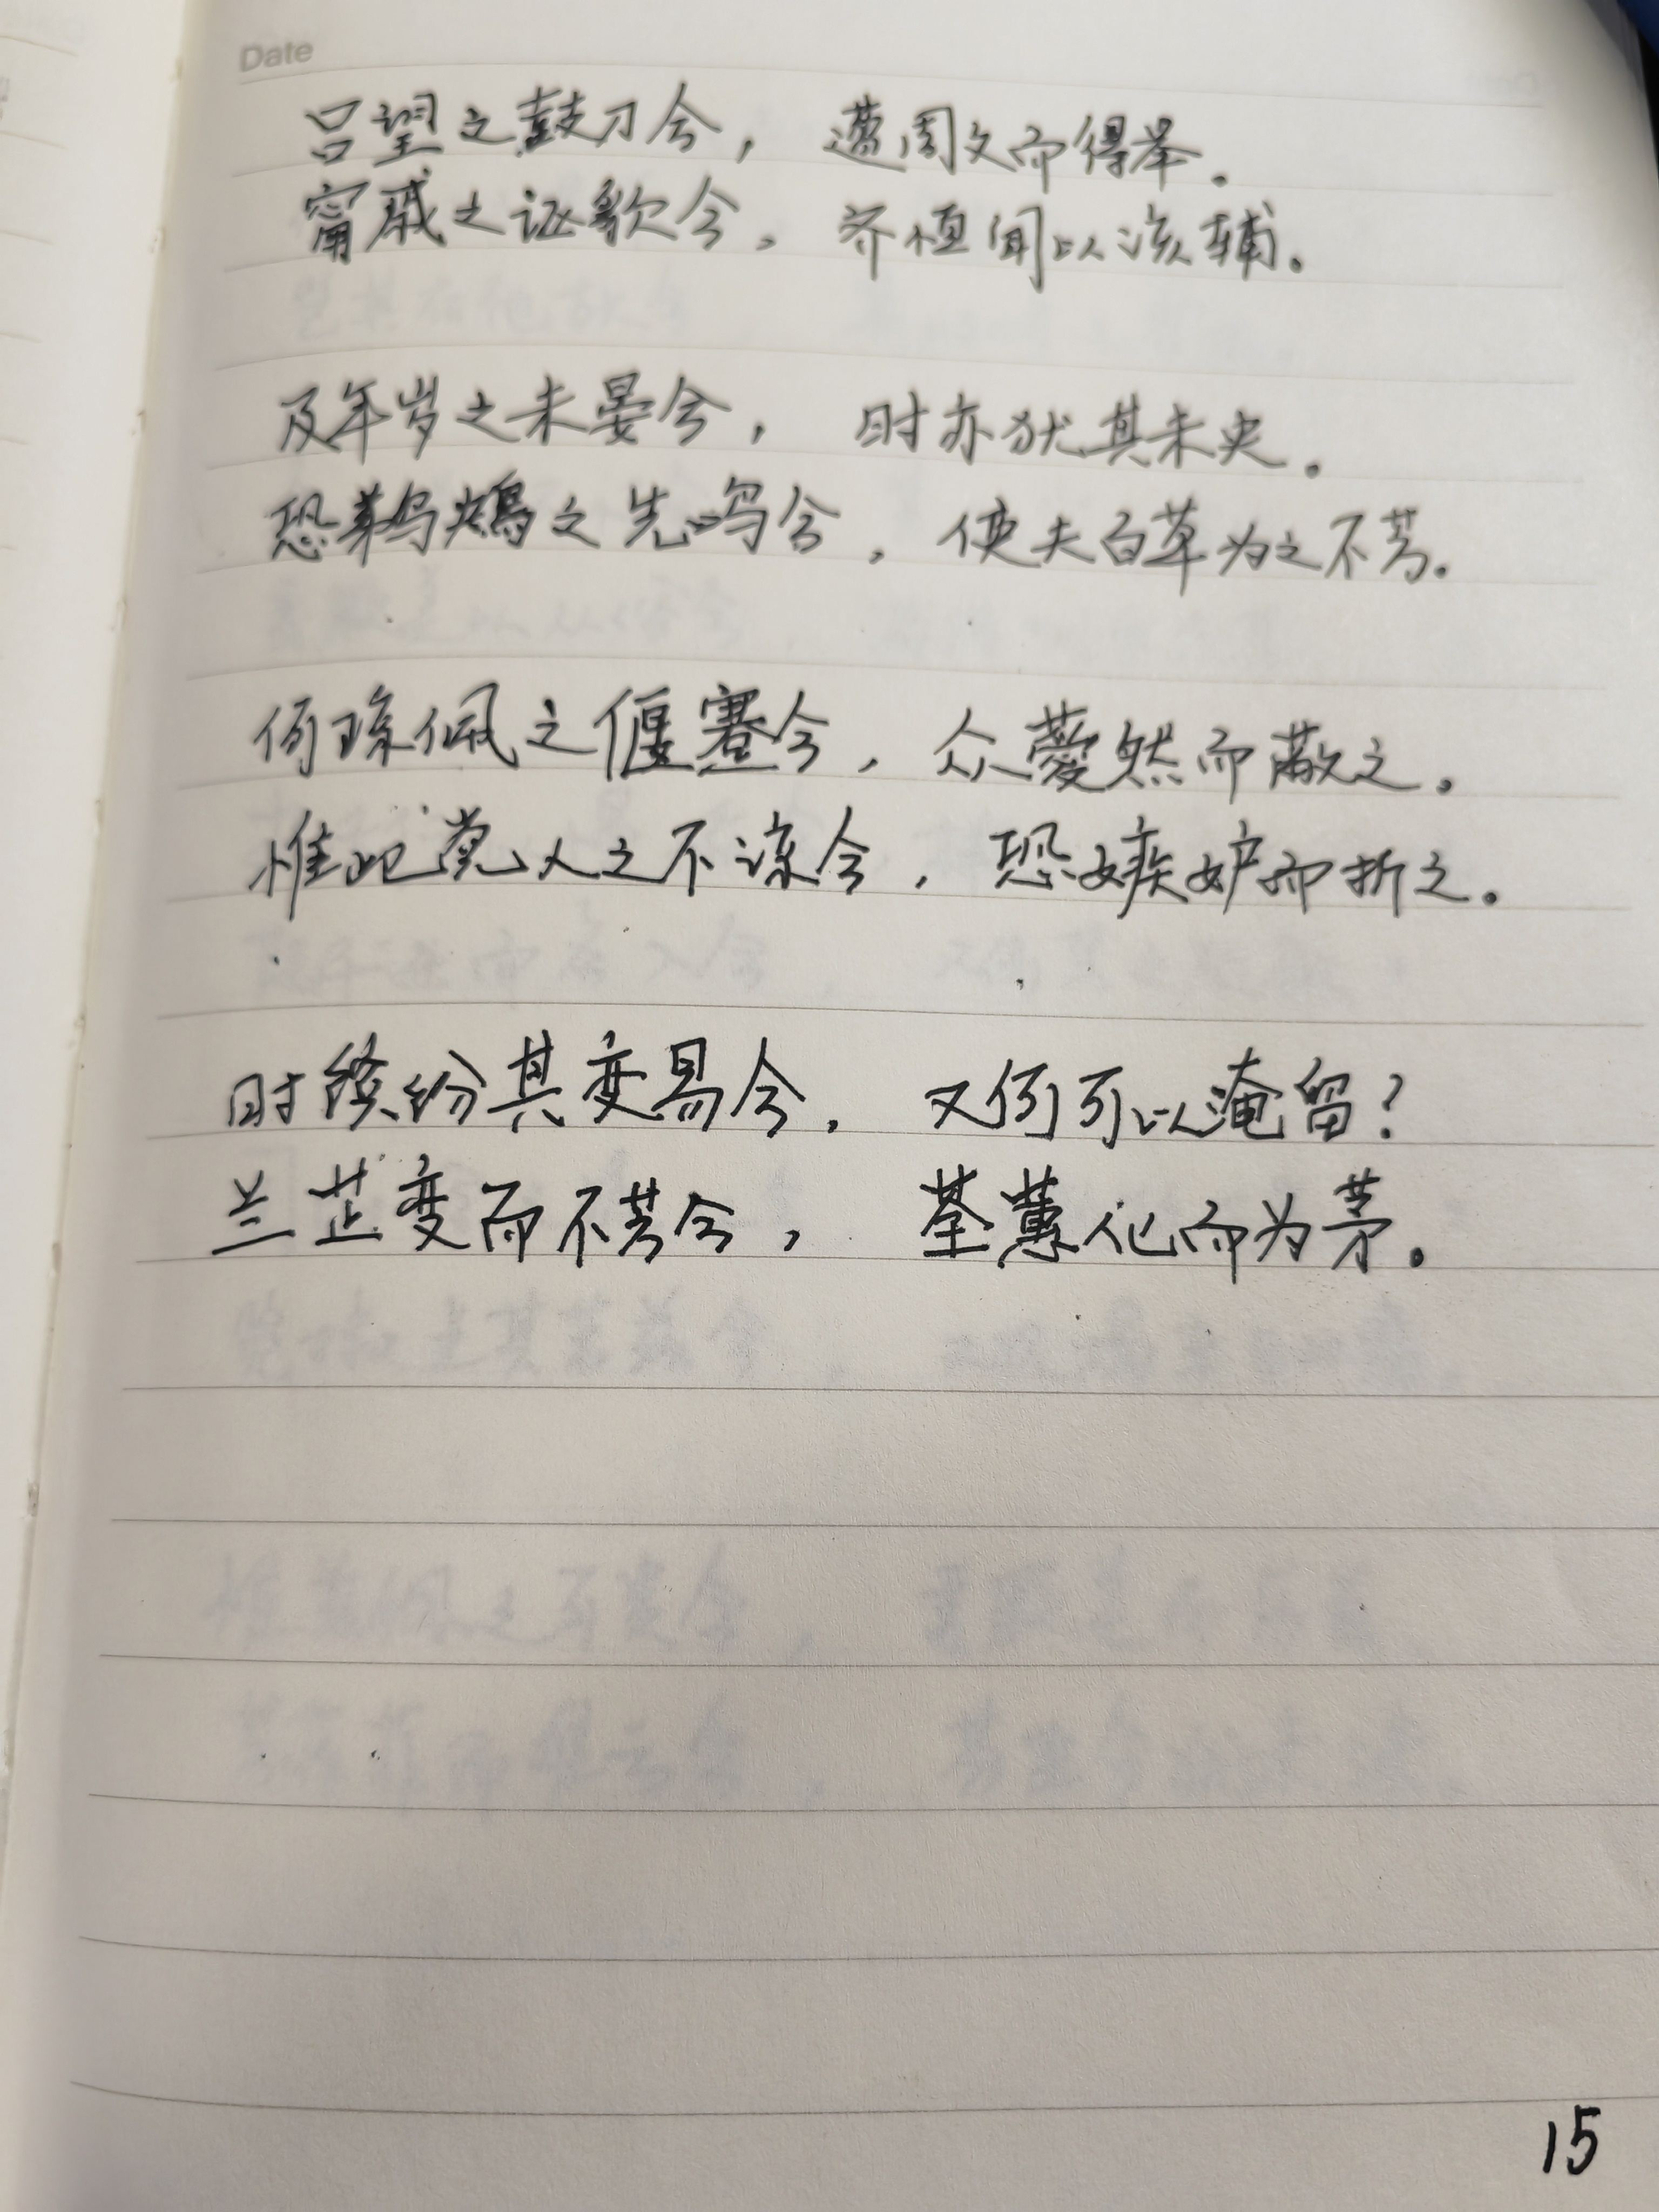 Date
吕望之鼓刀兮，遭周文而得举。
甯戚之讴歌兮，齐桓闻以该辅。
及年岁之未晏兮，时亦犹其未央。
恐鹈鴂之先鸣兮，使夫百草为之不芳。
何琼佩之偃蹇兮，众薆然而蔽之。
惟此党人之不谅兮，恐嫉妒而折之。
时缤纷其变易兮，又何可以淹留？
兰芷变而不芳兮，荃蕙化而为茅。
15